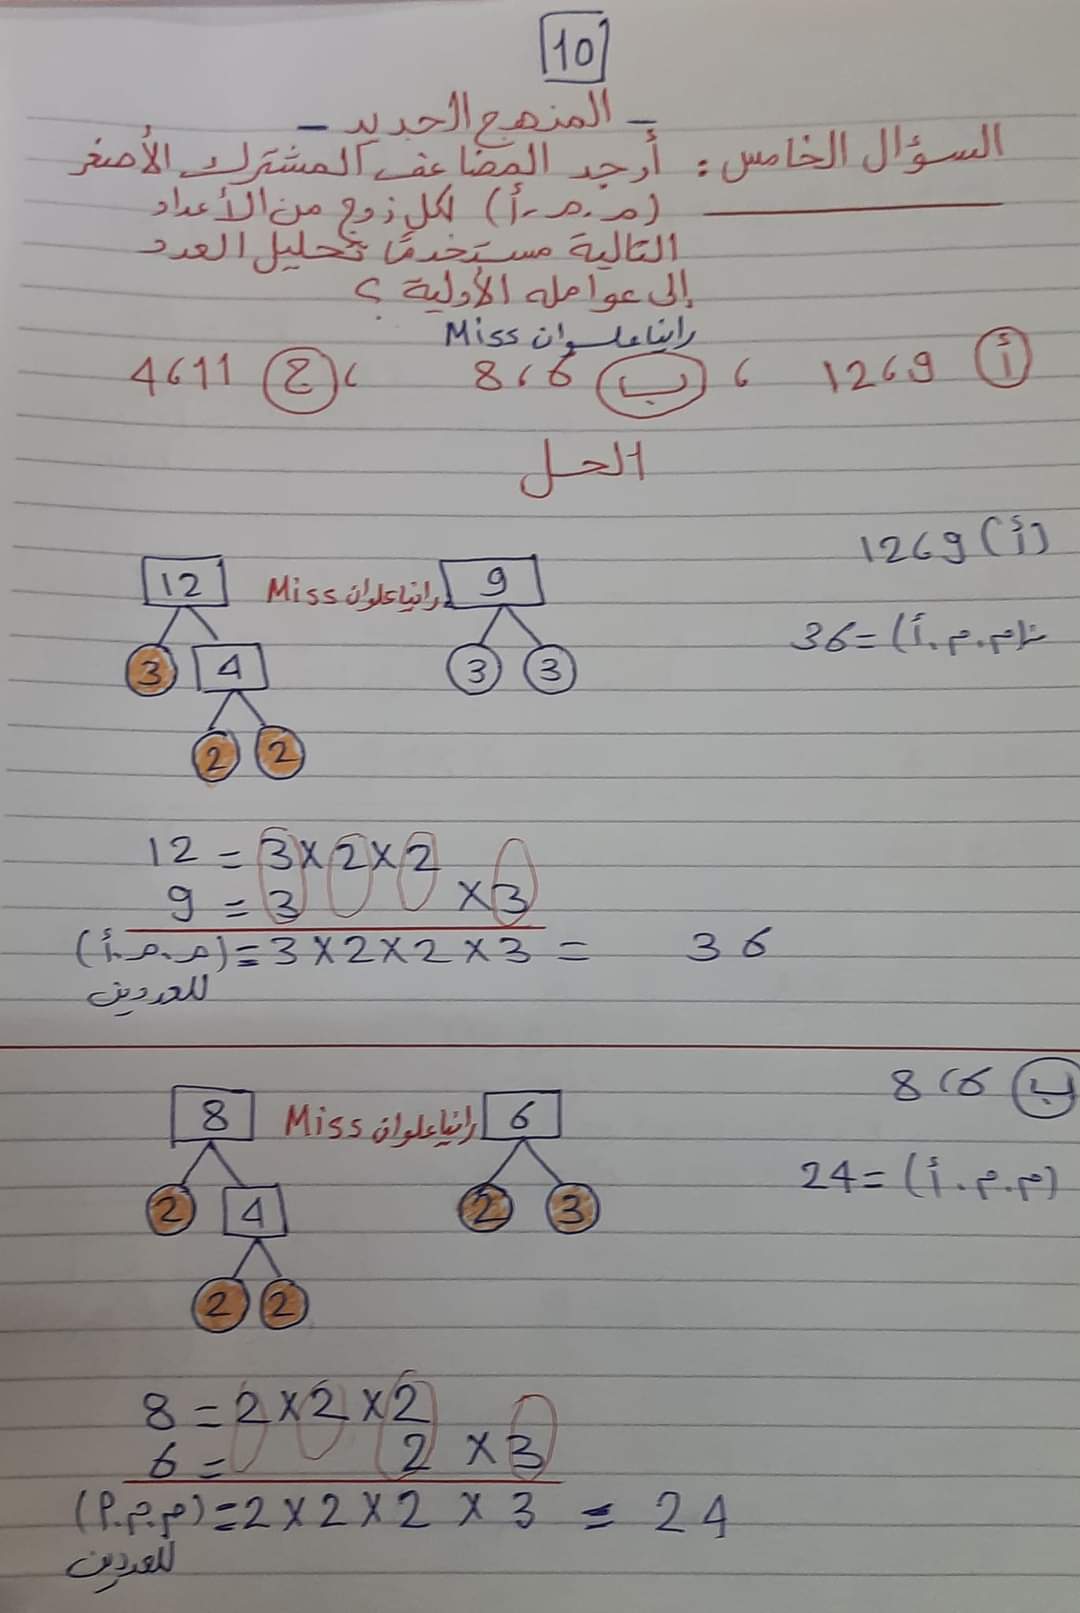 10
- المنهج الجديد -
السؤال الخامس: أوجد المضاعف المشترك الأصغر
(م.م.أ) لكل زوج من الأعداد
التالية مستخدمًا تحليل العدد
إلى عوامله الأولية؟
Miss رانيا علوان
أ 9، 12 ، ب 6، 8 ، ج 11، 4
الحل
(أ) 9، 12
12 Miss رانيا علوان 9
∴ (م.م.أ) = 36
3 4 3 3
2 2
12 = 3 × 2 × 2
9 = 3 × 3
(م.م.أ) = 3 × 2 × 2 × 3 = 36
للعددين
ب 6، 8
8 Miss رانيا علوان 6
(م.م.أ) = 24
2 4 2 3
2 2
8 = 2 × 2 × 2
6 = 2 × 3
(م.م.أ) = 2 × 2 × 2 × 3 = 24
للعددين